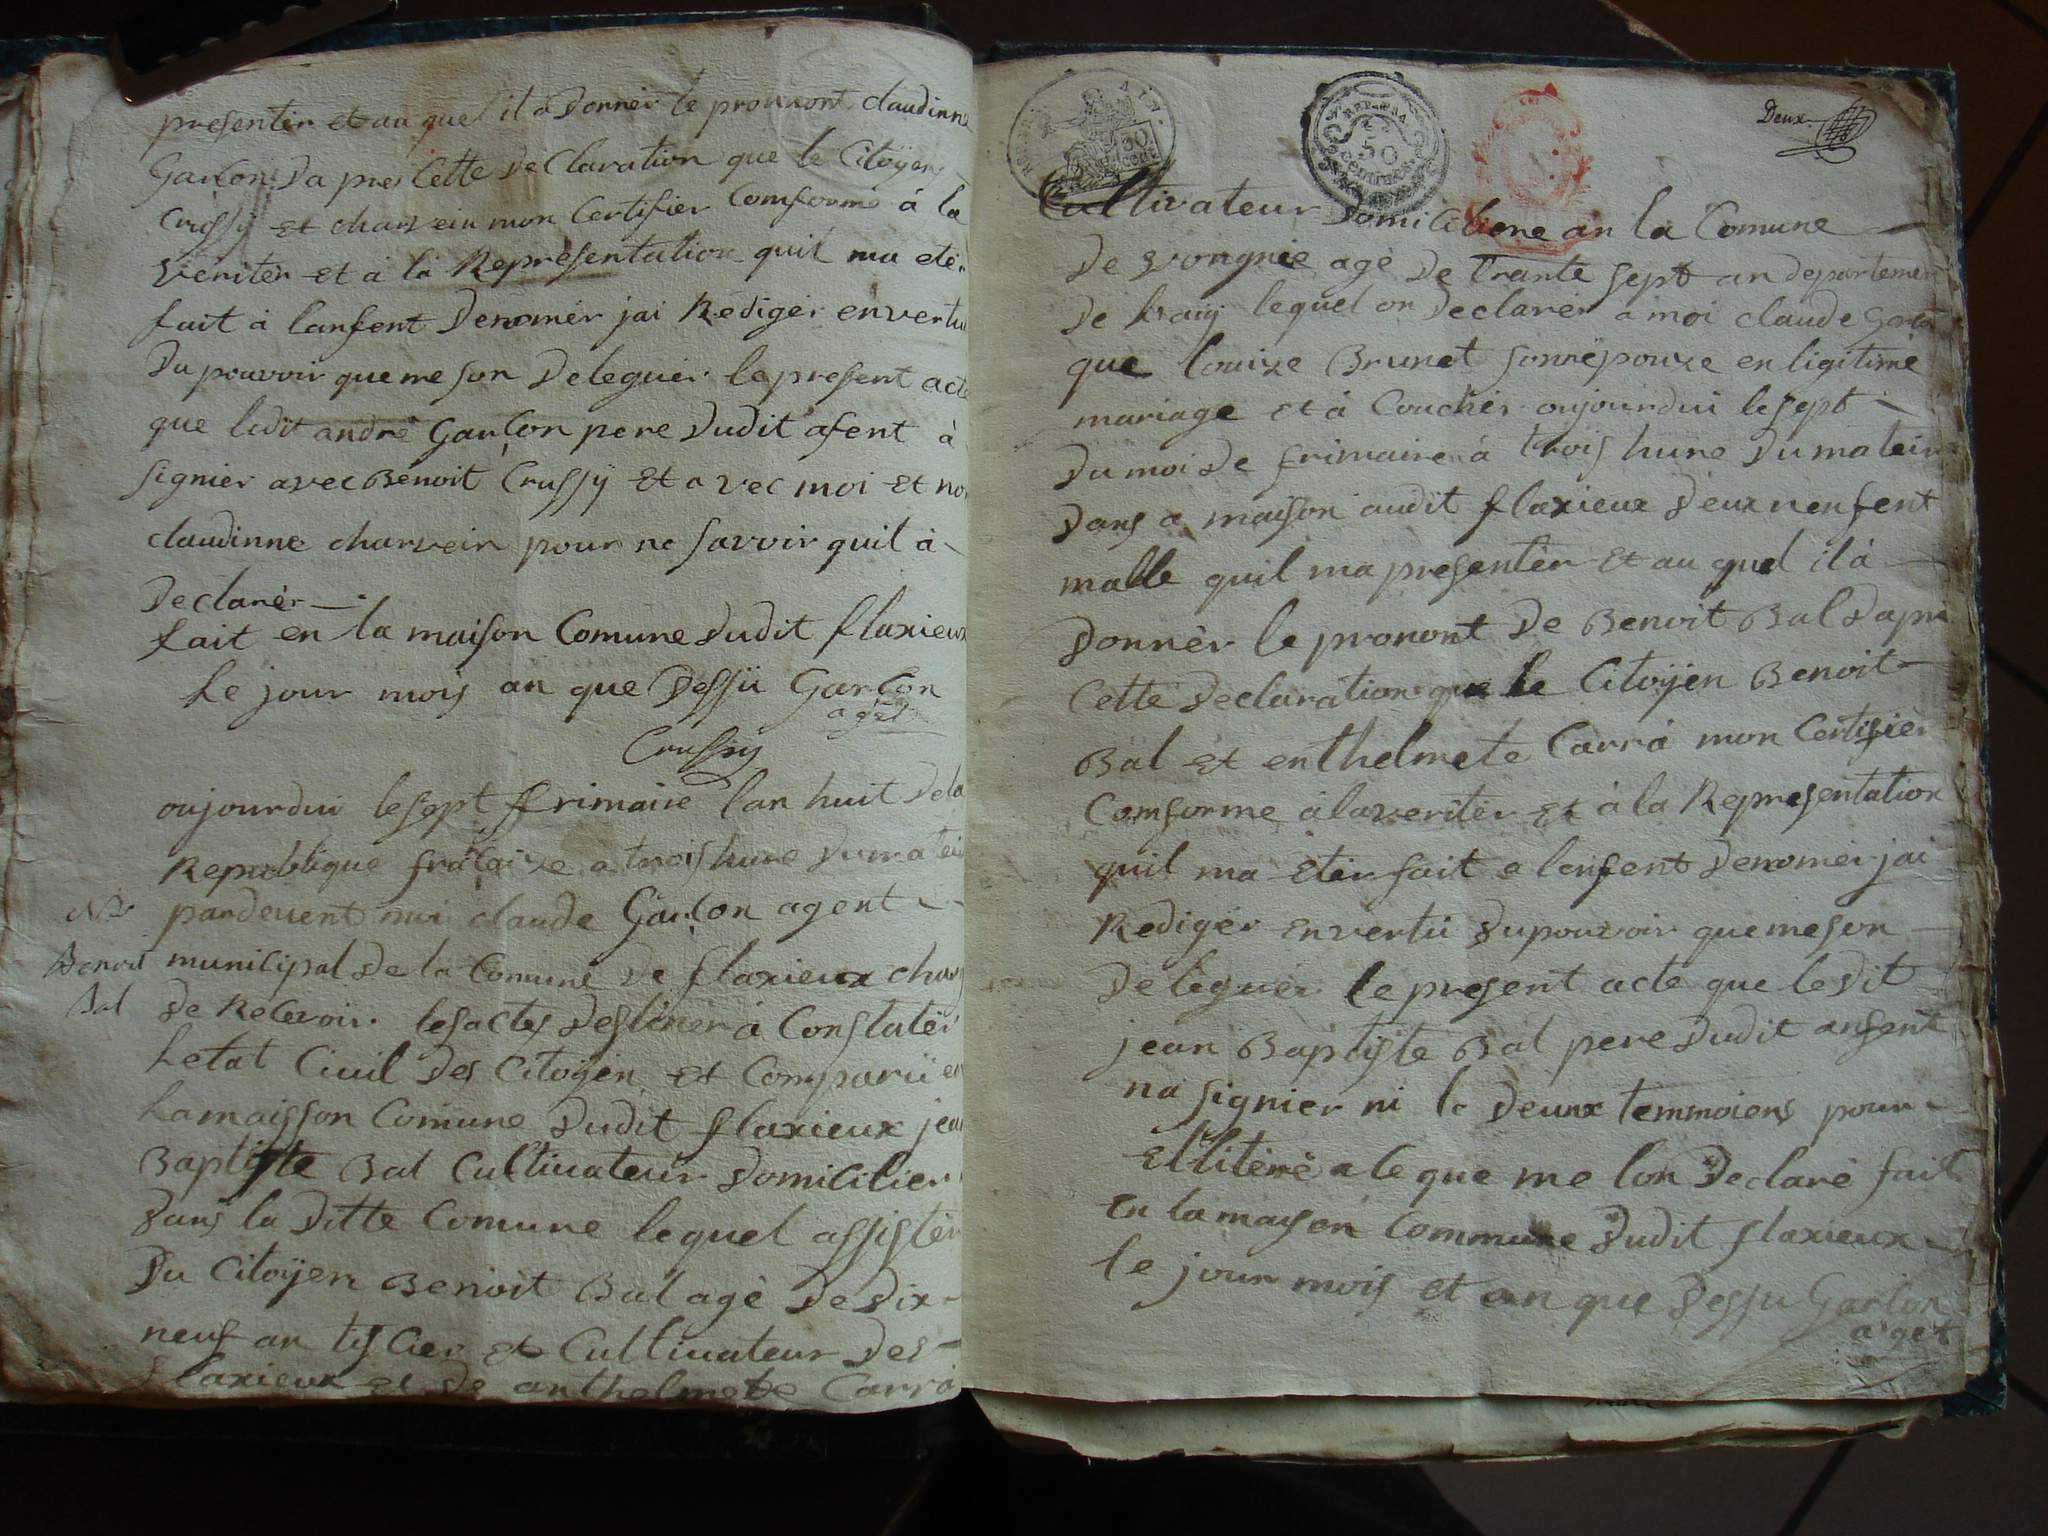 presentér et au quel il a Donnér le pronont claudinne
Garlon Da pres Cette DeClaration que le Citoÿen
Crussÿ et charvein mon Certifier Comforme à la
vériter et à la Représentation quil ma etér
fait à lanfent Denomér jai Rediger envertu
Du pouvoir que me son Deleguér le present acte
que ledit andré Garlon pere Dudit afent à
signier avec Benoit Crussÿ et avec moi et non
claudinne charvein pour ne savoir quil à
Declarér
fait en la maison Comune Dudit flaxieux
le jour mois an que Dessü Garlon
aget
Crussy
oujourdui le sept frimaire lan huit Dela
Republique fracaize a trois hure Du matein
pardevent moi claude Garlon agent
municipal De la Comune De flaxieux charg
De Relevoir les actes Destinér à Constatér
letat Civil Des Citoÿen et Comparü en
la maisson Comune Dudit flaxieux jean
Baptiste Bal Cultivateur Domicilier
Dans la Ditte Comune lequel assistér
Du Citoÿen Benoit Bal agé De Dix
neuf an tiscier et Cultivateur Des
flaxieux et De anthelmete Carrà
Nce
Benoit
Bal
Deux
30
50
Centimes
Cultivateur Domiciliene an la Comune
De vongnie agé De trante sept an departemen
De lraiy lequel on Declarér à moi claude Garlon
que louize Brunet sonnépouze en ligitime
mariage et à Couchér oujourdui le sept
Du moi De frimaire à trois hure Du matein
Dans a maison audit flaxieux Deux nenfent
malle quil ma presentér et au quel il à
Donnér le pronont De Benoit Bal Dapri
Cette Declaration que le Citoÿen Benoit
Bal et enthelmete Carrà mon Certifiér
Comforme à la veriter et à la Representation
quil ma eter fait a lenfent Denomér jai
Redigér envertü Du pouvoir que me son
Deléguér le present acte que le Dit
jean Baptiste Bal pere Dudit anfent
na signier ni le Deux temmoiens pour
Ellitéré a le que me lon Declaré fait
En la maison Commune Dudit flaxieux
le jour mois et an que Dessu Garlon
aget